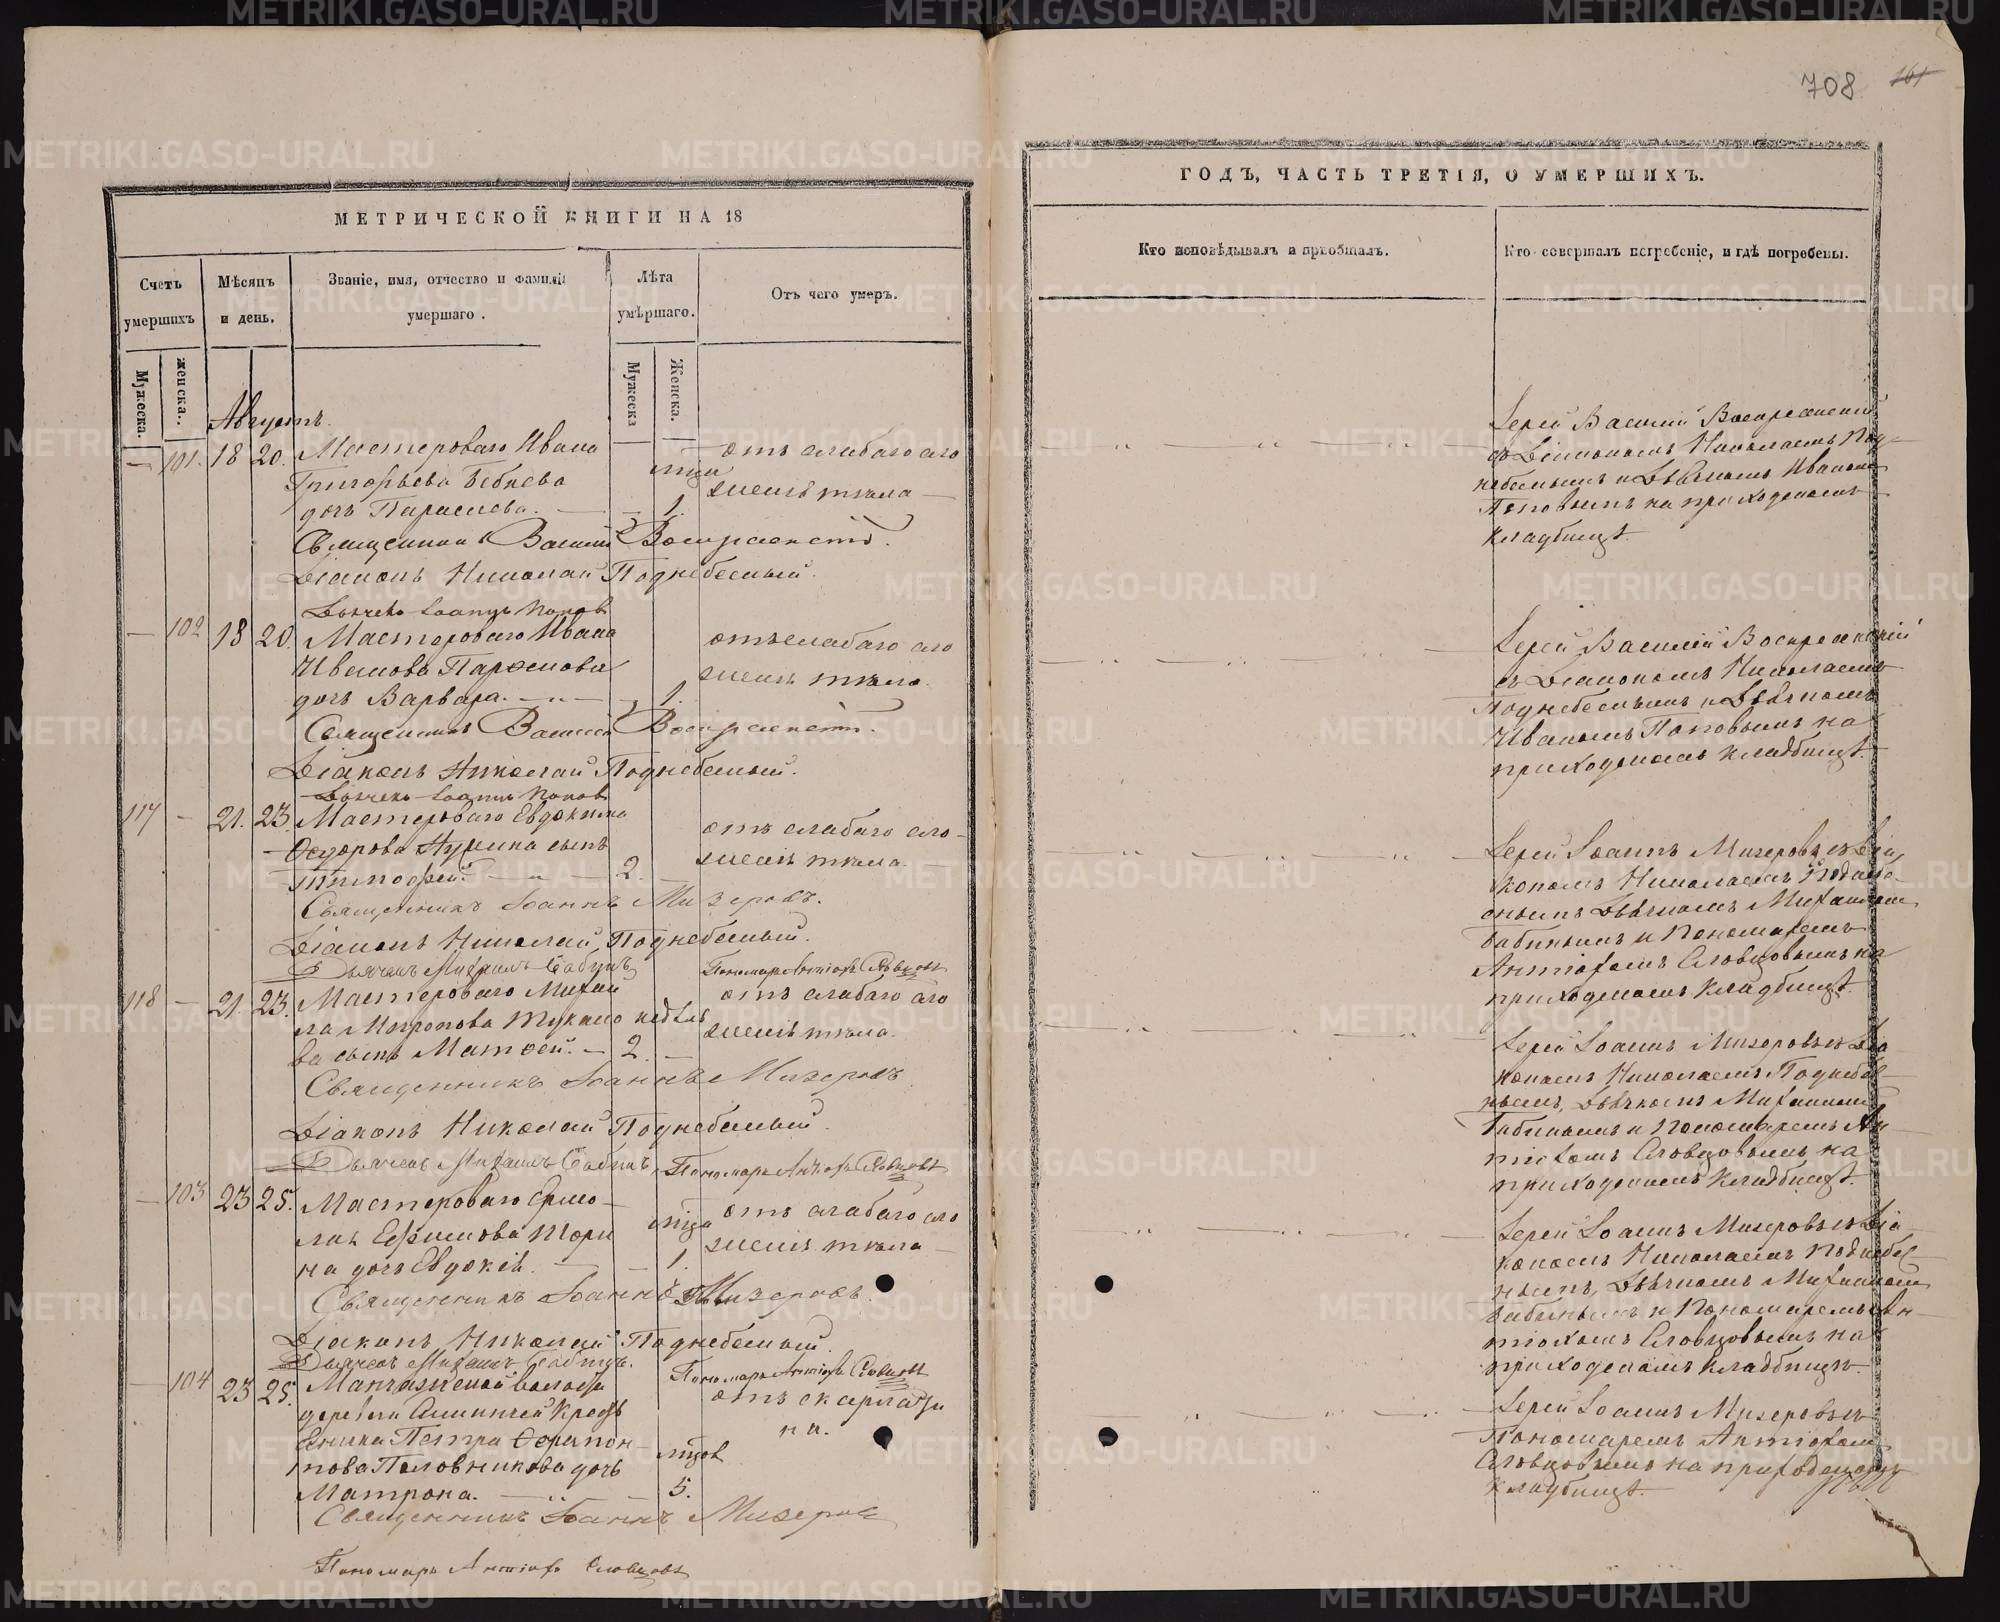 708 161
МЕТРИЧЕСКОЙ КНИГИ НА 18
Счетъ умершихъ
Мѣсяцъ и день.
Званіе, имя, отчество и фамилія умершаго.
Лѣта умѣршаго.
Отъ чего умеръ.
Мужеска.
женска.
Мужеска
Женска.
Августъ.
— 101. 18 20. Мастероваго Ивана
Григорьева Бебнева
дочь Параскева. — 1. мца
отъ слабаго сло
женія тѣла —
Священникъ Василій Воскресенскій.
Діаконъ Николай Поднебесный.
Дьячекъ Іоаннъ Поповъ
— 102 18 20. Мастероваго Ивана
дочь Варвара. — 1.
отъ слабаго сло
женія тѣла.
Священникъ Василій Воскресенскій.
Діаконъ Николай Поднебесный.
Дьячекъ Іоаннъ Поповъ
117 — 21. 23. Мастероваго Евдокима
Ѳедорова сынъ
Тимофей. — 2. —
отъ слабаго сло-
женія тѣла.
Священникъ Іоаннъ Мизеровъ.
Діаконъ Николай Поднебесный.
Дьячекъ Михаилъ Бабинъ Пономарь Антіохъ Словцовъ
118 — 21. 23. Мастероваго Михаи
ла Миронова
ва сынъ Матвей. — 2. недѣль
отъ слабаго сло
женія тѣла.
Священникъ Іоаннъ Мизеровъ
Діаконъ Николай Поднебесный.
Дьячекъ Михаилъ Бабинъ Пономарь Антіохъ Словцовъ
— 103 23 25. Мастероваго Ермо-
лая Ефимова Тори
на дочь Евдокія. — 1. мца
отъ слабаго сло
женія тѣла —
Священникъ Іоаннъ Мизеровъ.
Діаконъ Николай Поднебесный.
Дьячекъ Михаилъ Бабинъ. Пономарь Антіохъ Словцовъ
— 104 23 25. волости
деревни кресть
янина Петра Ферапон-
това Половникова дочь
Матрона. — 5. мцов
отъ скарлати
на.
Священникъ Іоаннъ Мизеровъ
Пономарь Антіохъ Словцовъ
ГОДЪ, ЧАСТЬ ТРЕТІЯ, О УМЕРШИХЪ.
Кто исповѣдывалъ и пріобщалъ.
Кто совершалъ погребеніе, и гдѣ погребены.
Іерей Василій Воскресенскій
съ Діакономъ Николаемъ Под-
небеснымъ и Дьячкомъ Иваномъ
Поповымъ на приходскомъ
кладбищѣ.
Іерей Василій Воскресенскій
съ Діакономъ Николаемъ
Поднебеснымъ и Дьячкомъ
Иваномъ Поповымъ на
приходскомъ кладбищѣ.
Іерей Іоаннъ Мизеровъ съ Діа
кономъ Николаемъ Поднебе-
снымъ Дьячкомъ Михаиломъ
Бабинымъ и Пономаремъ
Антіохомъ Словцовымъ на
приходскомъ кладбищѣ.
Іерей Іоаннъ Мизеровъ съ Діа
кономъ Николаемъ Поднебес-
нымъ, Дьячкомъ Михаиломъ
Бабинымъ и Пономаремъ Ан-
тіохомъ Словцовымъ на
приходскомъ кладбищѣ.
Іерей Іоаннъ Мизеровъ съ Діа-
кономъ Николаемъ Поднебес-
нымъ, Дьячкомъ Михаиломъ
Бабинымъ и Пономаремъ Ан-
тіохомъ Словцовымъ на
приходскомъ кладбищѣ.
Іерей Іоаннъ Мизеровъ съ
Пономаремъ Антіохомъ
Словцовымъ на приходскомъ
кладбищѣ.
METRIKI.GASO-URAL.RU